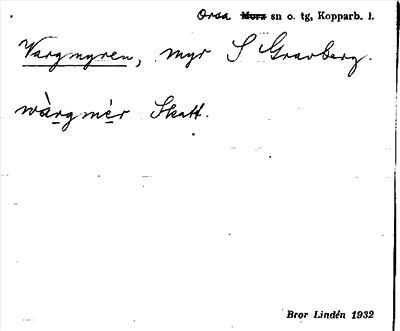 Orsa Mora sn o. tg, Kopparb. l.
Vargmyren, myr S Gravberg.
wàrgmér Skatt.
Bror Lindén 1932